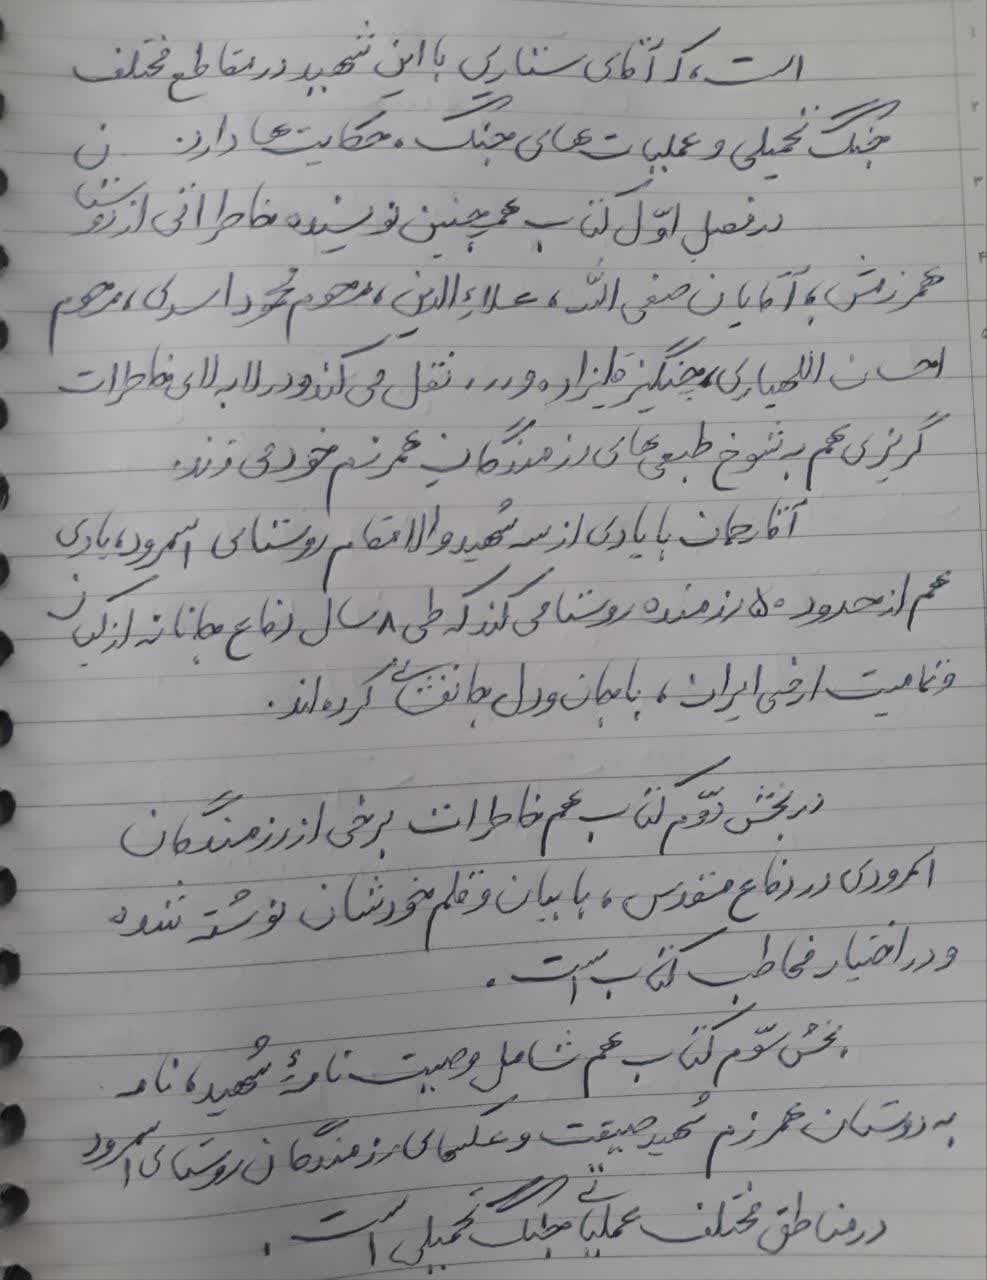 است، که آقای ستاری با این شهید در مقاطع مختلف
جنگ تحمیلی و عملیات‌های جنگ، حکایت‌ها دارد.
در فصل اوّل کتاب همچنین نویسنده خاطراتی از دوستان
همرزمش، آقایان صفی الله، علاءالدین، مرحوم محمود اسدی، مرحوم
احسان اللهیاری، چنگیز قلیزاده و... نقل می‌کند و در لابه لای خاطرات
گریزی هم به شوخ طبعی‌های رزمندگان همرزم خود می زند.
آقا رحمان با یادی از سه شهید والامقام روستای اسمرود، یادی
هم از حدود ۵۰ رزمنده روستا می‌کند که طی ۸ سال دفاع جانانه از کیان
و تمامیت ارضی ایران، با جان و دل جانفشانی کرده‌اند.
در بخش دوّم کتاب هم خاطرات برخی از رزمندگان
اسمرودی در دفاع مقدس، با بیان و قلم خودشان نوشته شده
و در اختیار مخاطب کتاب است.
بخش سوّم کتاب هم شامل وصیت نامهٔ شهید، نامه
به دوستان همرزم شهید و عکسهای رزمندگان روستای اسمرود
در مناطق مختلف عملیاتی جنگ تحمیلی است.